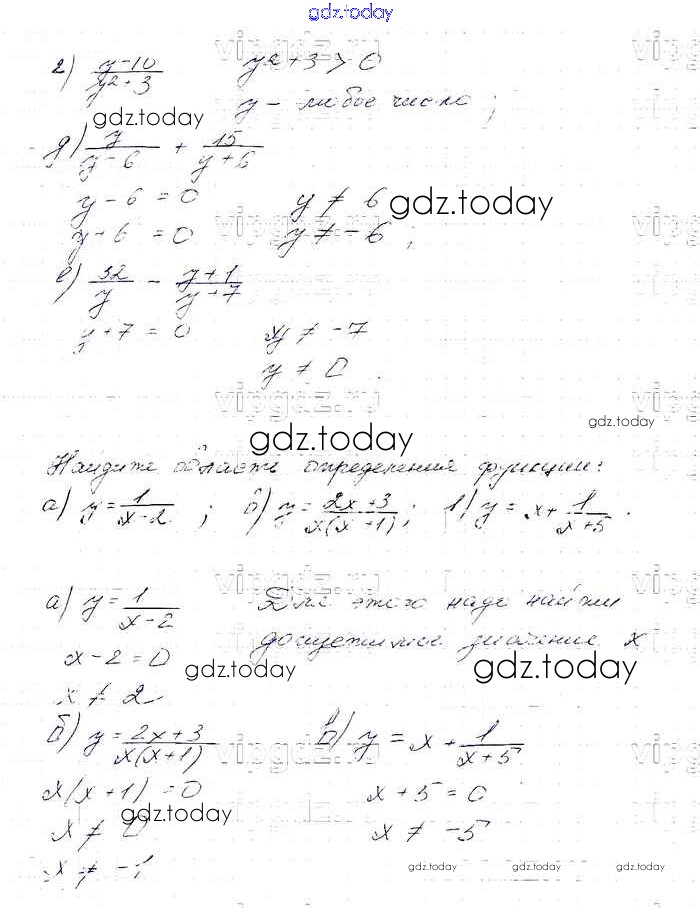 gdz.today
г) y-10/y²+3 y²+3>0
y - любое число;
gdz.today
д) y/y-6 + 15/y+6
y-6=0 y≠6 gdz.today
y+6=0 y≠-6;
е) 32/y - y+1/y+7
y+7=0 y≠-7
y≠0.
vipgdz.ru
gdz.today
gdz.today
Найдите область определения функции:
а) y=1/x-2; б) y=2x+3/x(x+1); в) y=x+1/x+5.
а) y=1/x-2 Для этого надо найти
допустимое значение x
x-2=0 gdz.today gdz.today
x≠2
б) y=2x+3/x(x+1) в) y=x+1/x+5
x(x+1)=0 x+5=0
gdz.today
x≠0 x≠-5
x≠-1
gdz.today gdz.today gdz.today